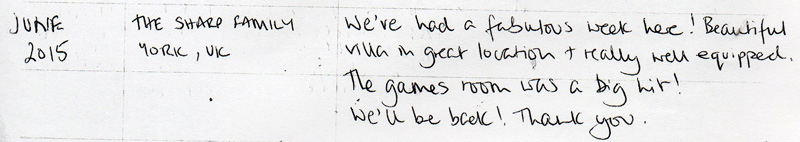 JUNE THE SHARP FAMILY We've had a fabulous week here! Beautiful
2015 YORK, UK villa in great location + really well equipped.
The games room was a big hit!
We'll be back! Thank you.